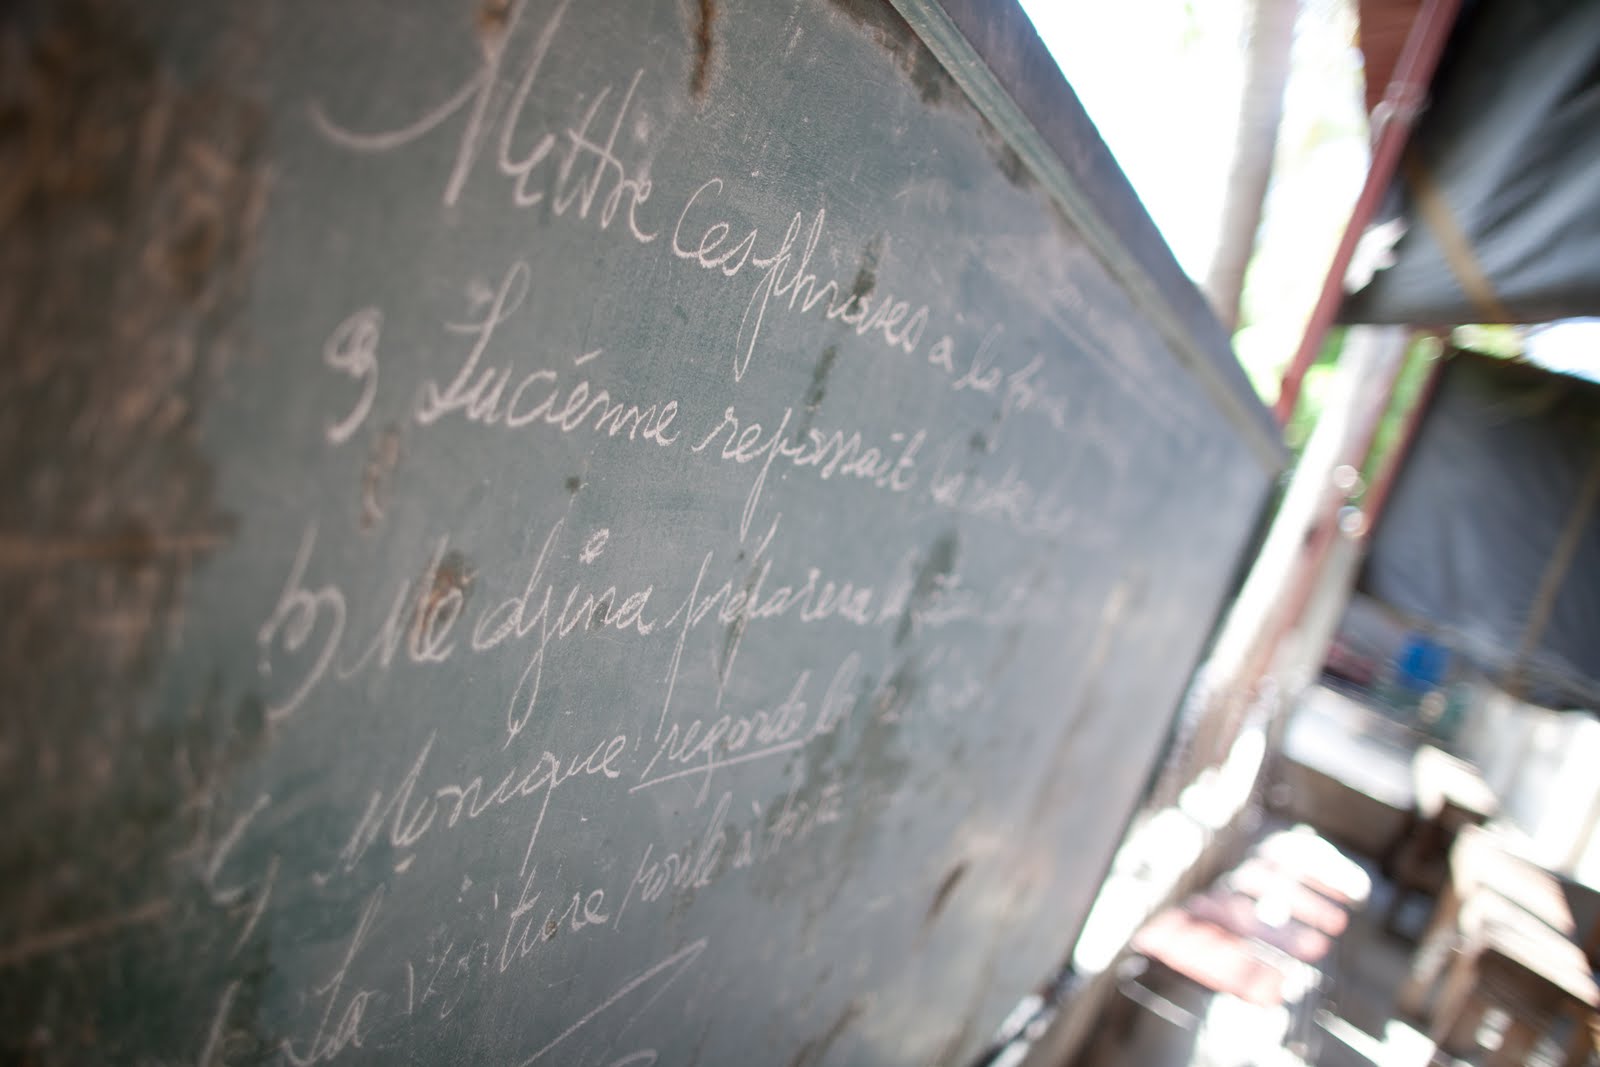 Mettre Ces phrases à la forme
a) Luciénne repassait
b) Medjina préparera
c) Monique regarde
La voiture roule à